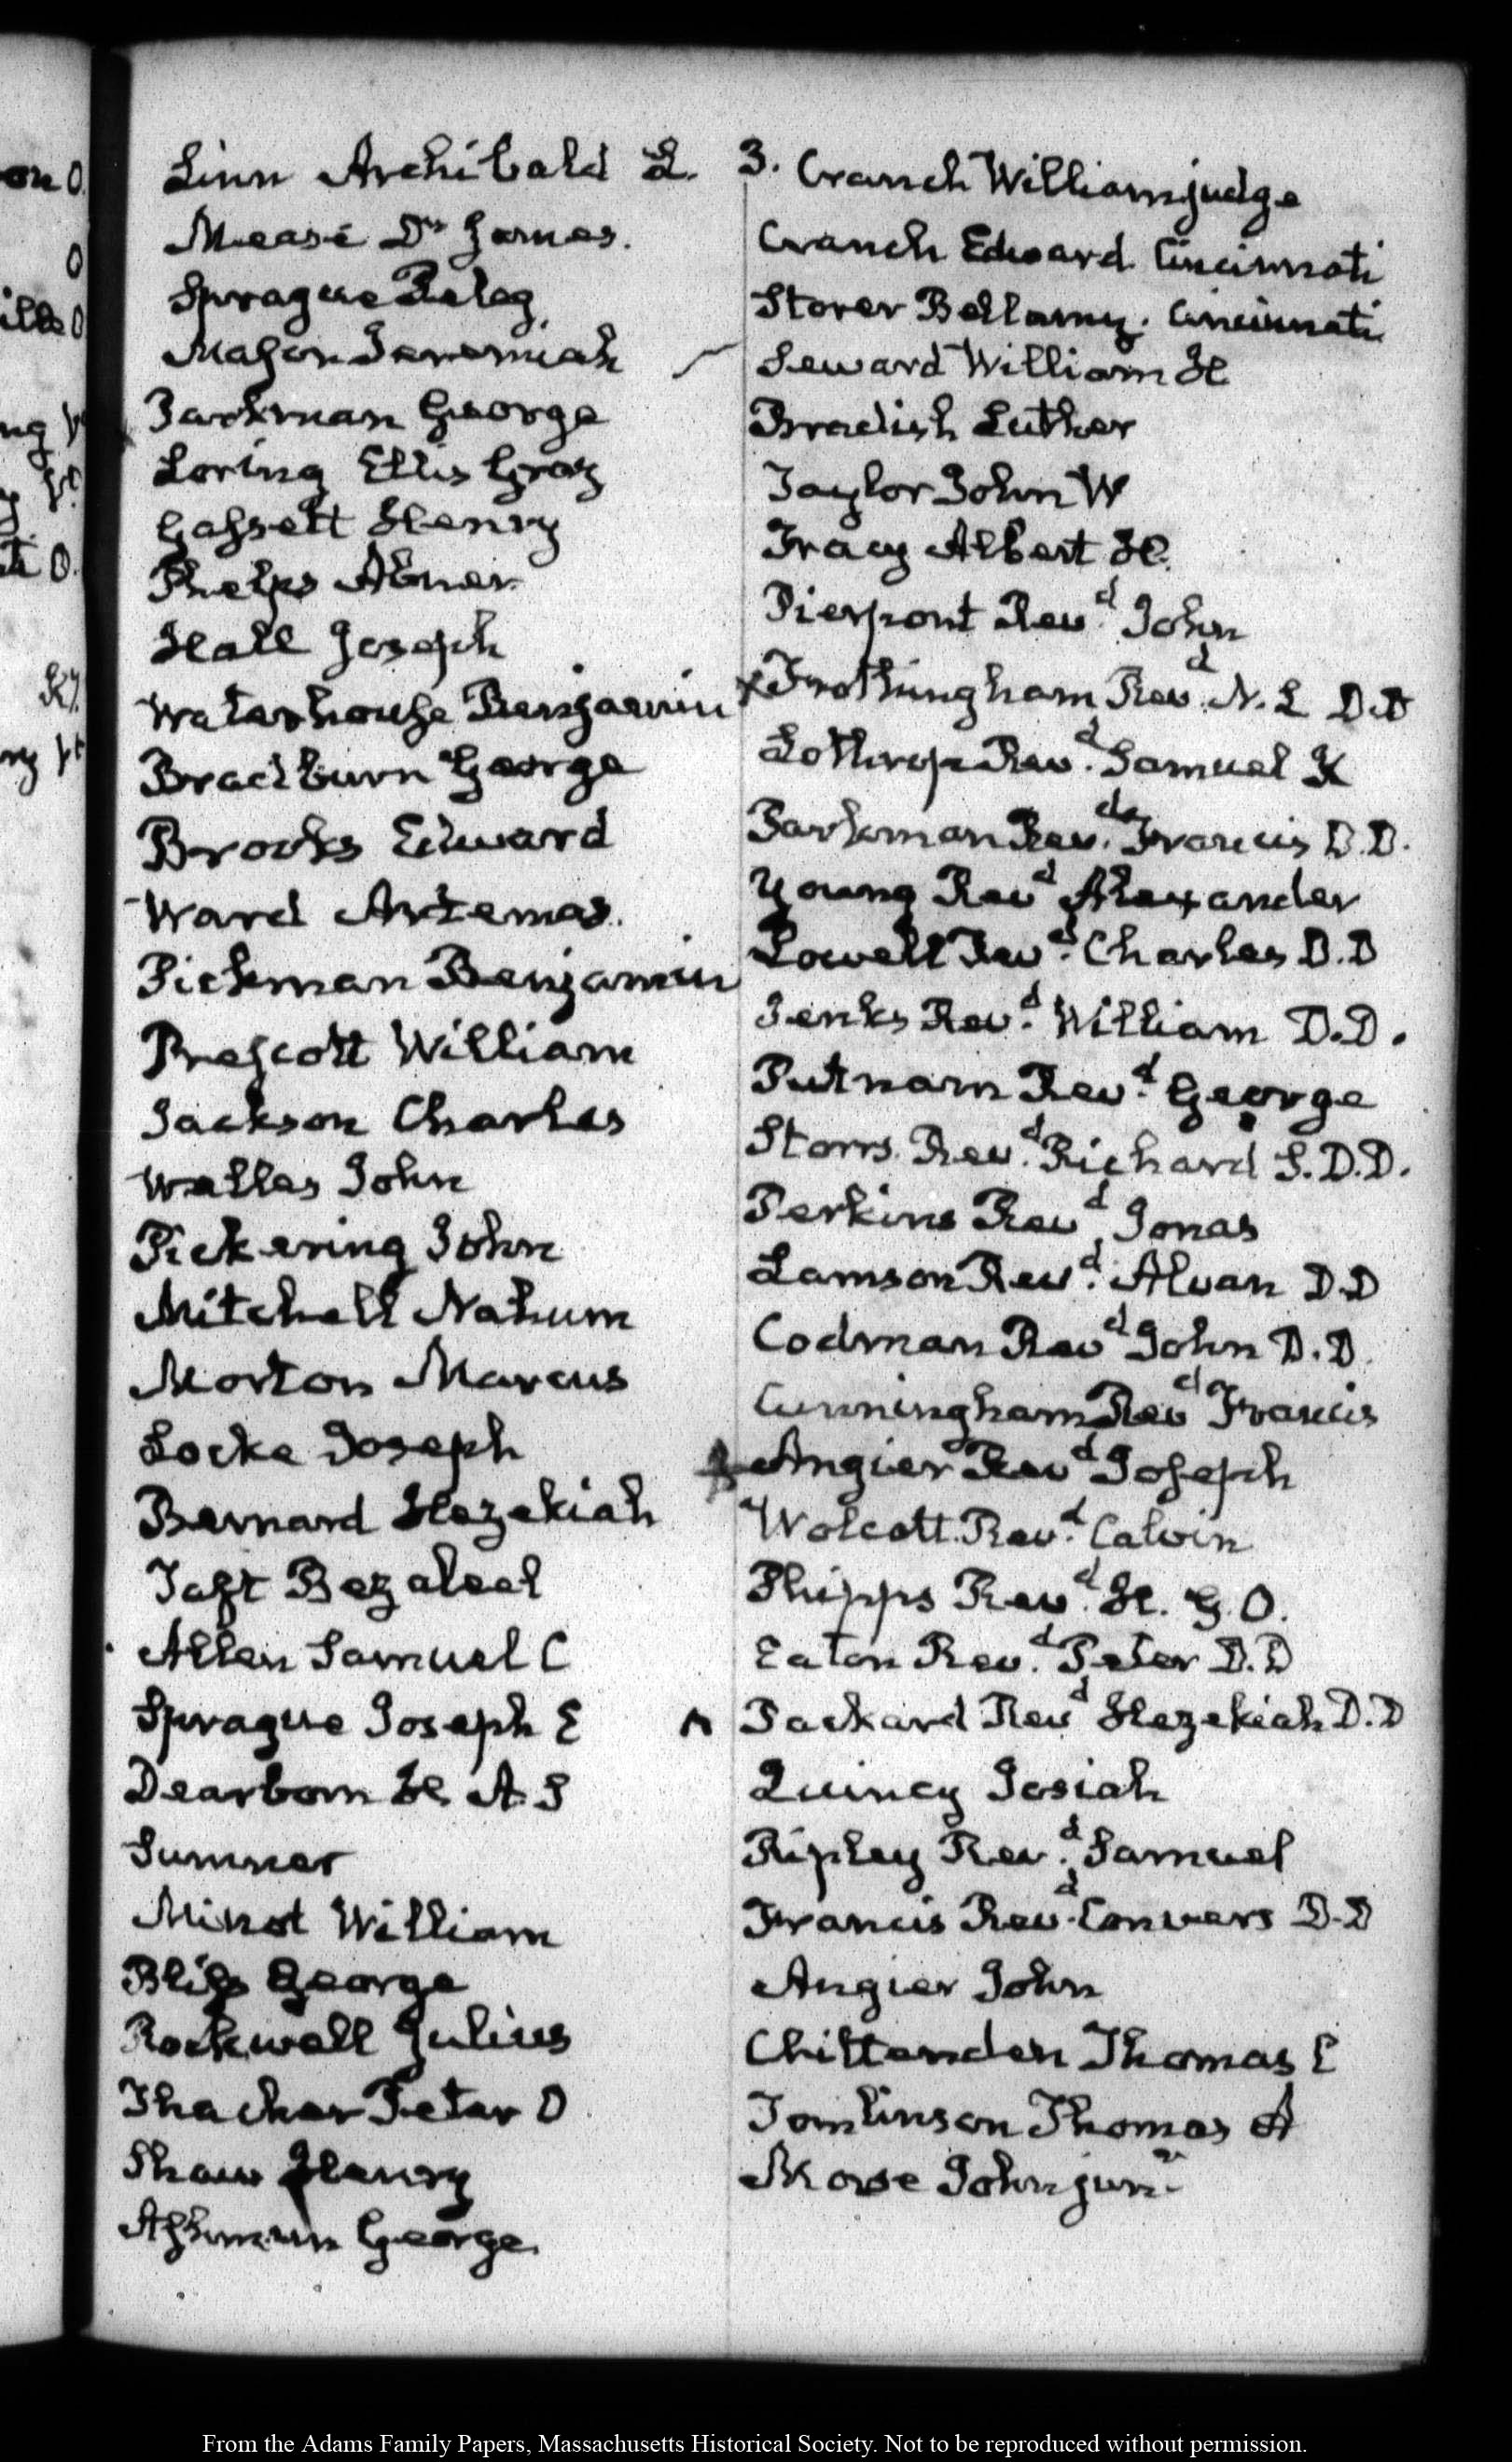 Linn Archibald L. 3.
Mease Dr. James.
Sprague Peleg
Mason Jeremiah
Parkman George
Loring Ellis Gray
Gassett Henry
Phelps Abner
Hall Joseph
Waterhouse Benjamin
Bradburn George
Brooks Edward
Ward Artemas.
Pickman Benjamin
Prescott William
Jackson Charles
Welles John
Pickering John
Mitchell Nahum
Morton Marcus
Locke Joseph
Bernard Hezekiah
Taft Bezaleel
Allen Samuel C
Sprague Joseph E
Dearborn H. A. S
Sumner
Minot William
Bliss George
Rockwell Julius
Thacher Peter O
Shaw Henry
Ashmun George.
Cranch William judge
Cranch Edward Cincinnati
Storer Bellamy. Cincinnati
Seward William H
Bradish Luther
Taylor John W
Tracy Albert H.
Pierpont Revd. John
x Frothingham Revd. N. L D.D
Lothrop Revd. Samuel K
Parkman Revd. Francis D.D.
Young Revd Alexander
Lowell Revd. Charles D.D
Jenks Revd. William D.D.
Putnam Revd. George
Storrs Revd. Richard S. D.D.
Perkins Revd. Jonas
Lamson Revd. Alvan D.D
Codman Revd John D.D.
Cunningham Revd Francis
Angier Revd Joseph
Wolcott Revd. Calvin
Phipps Revd. H. G. O.
Eaton Revd. Peter D.D
Packard Revd Hezekiah D.D
Quincy Josiah
Ripley Revd. Samuel
Francis Revd. Convers D.D
Angier John
Chittenden Thomas C
Tomlinson Thomas A
Morse John junr.
From the Adams Family Papers, Massachusetts Historical Society. Not to be reproduced without permission.